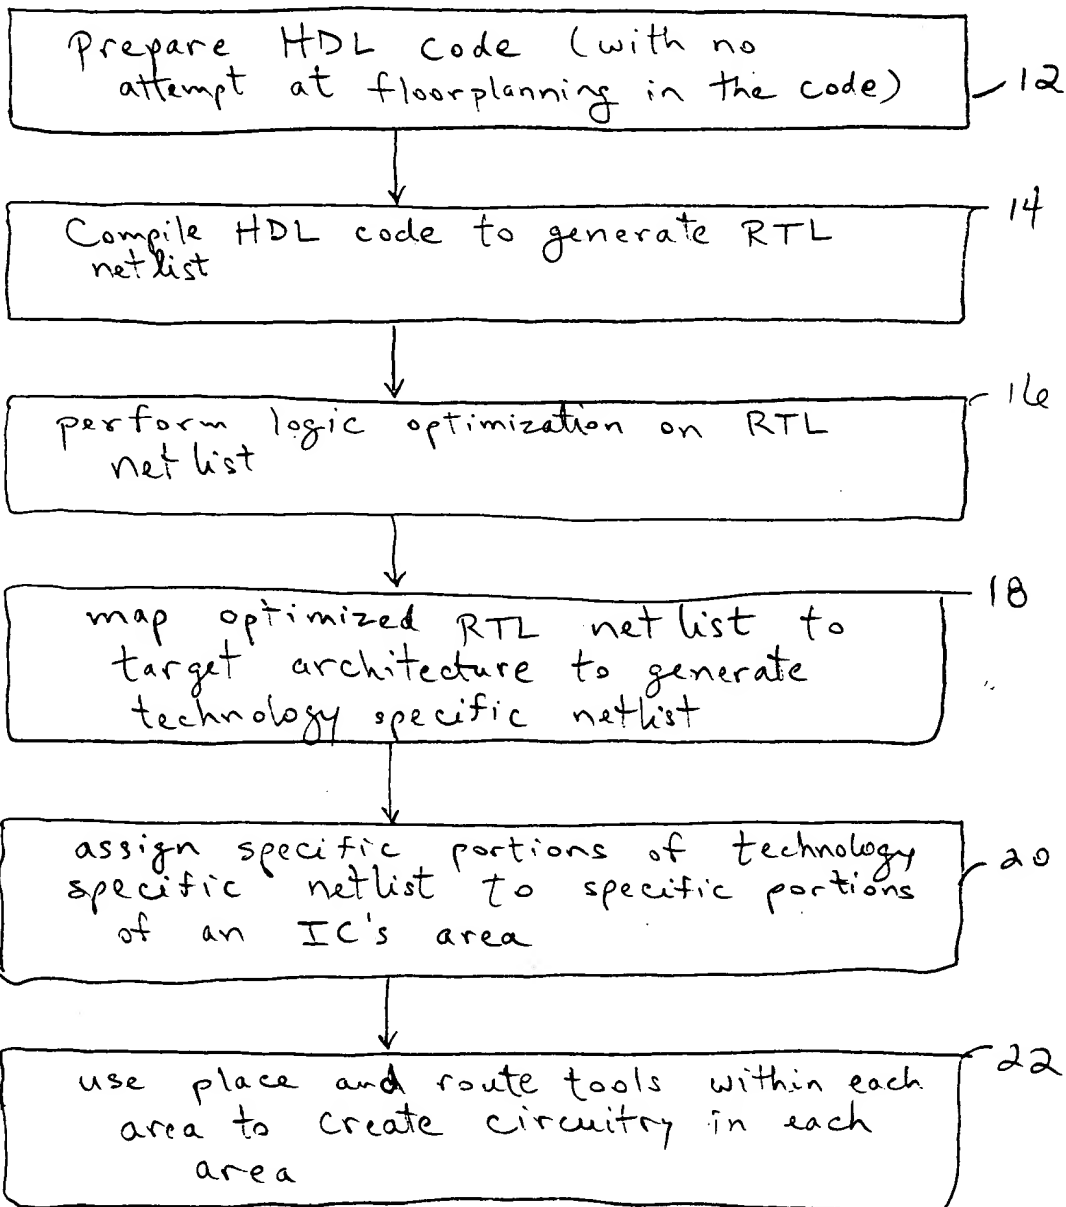 Prepare HDL code (with no
attempt at floorplanning in the code)
12
Compile HDL code to generate RTL
netlist
14
perform logic optimization on RTL
netlist
16
map optimized RTL netlist to
target architecture to generate
technology specific netlist
18
assign specific portions of technology
specific netlist to specific portions
of an IC's area
20
use place and route tools within each
area to create circuitry in each
area
22